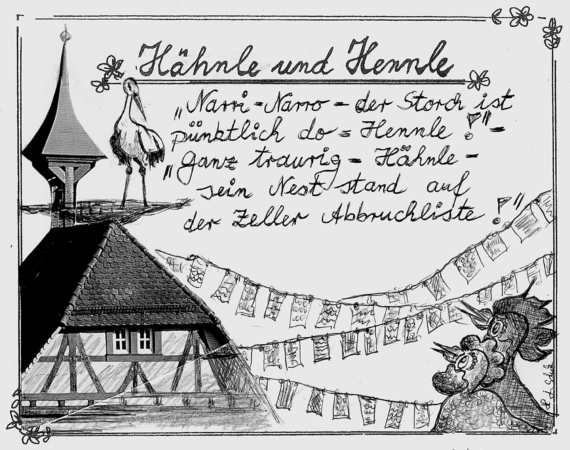 Hähnle und Hennle
„Narri-Narro - der Storch ist
pünktlich do - Hennle !" -
„Ganz traurig - Hähnle -
sein Nest stand auf
der Zeller Abbruchliste !"